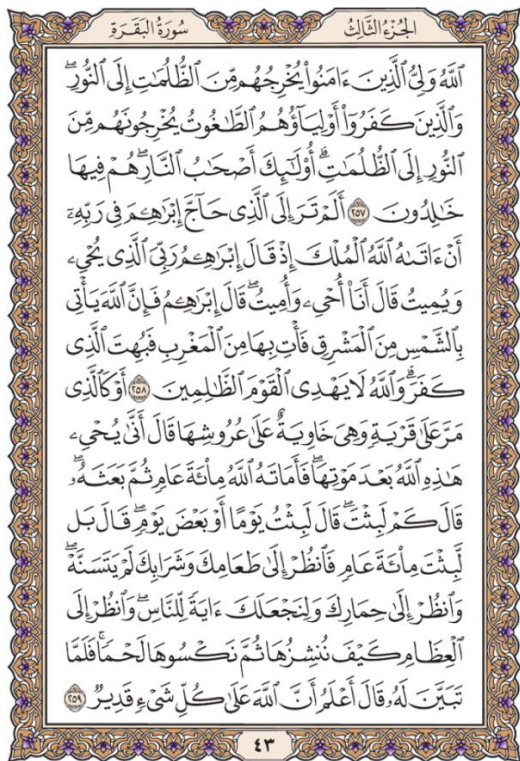 الجُزءُ الثَّالِثُ سُورَةُ البَقَرَةِ
ٱللَّهُ وَلِيُّ ٱلَّذِينَ ءَامَنُواْ يُخۡرِجُهُم مِّنَ ٱلظُّلُمَٰتِ إِلَى ٱلنُّورِۖ
وَٱلَّذِينَ كَفَرُوٓاْ أَوۡلِيَآؤُهُمُ ٱلطَّٰغُوتُ يُخۡرِجُونَهُم مِّنَ
ٱلنُّورِ إِلَى ٱلظُّلُمَٰتِۗ أُوْلَٰٓئِكَ أَصۡحَٰبُ ٱلنَّارِۖ هُمۡ فِيهَا
خَٰلِدُونَ ٢٥٧ أَلَمۡ تَرَ إِلَى ٱلَّذِي حَآجَّ إِبۡرَٰهِـۧمَ فِي رَبِّهِۦٓ
أَنۡ ءَاتَىٰهُ ٱللَّهُ ٱلۡمُلۡكَ إِذۡ قَالَ إِبۡرَٰهِـۧمُ رَبِّيَ ٱلَّذِي يُحۡيِۦ
وَيُمِيتُ قَالَ أَنَا۠ أُحۡيِۦ وَأُمِيتُۖ قَالَ إِبۡرَٰهِـۧمُ فَإِنَّ ٱللَّهَ يَأۡتِي
بِٱلشَّمۡسِ مِنَ ٱلۡمَشۡرِقِ فَأۡتِ بِهَا مِنَ ٱلۡمَغۡرِبِ فَبُهِتَ ٱلَّذِي
كَفَرَۗ وَٱللَّهُ لَا يَهۡدِي ٱلۡقَوۡمَ ٱلظَّٰلِمِينَ ٢٥٨ أَوۡ كَٱلَّذِي
مَرَّ عَلَىٰ قَرۡيَةٖ وَهِيَ خَاوِيَةٌ عَلَىٰ عُرُوشِهَا قَالَ أَنَّىٰ يُحۡيِۦ
هَٰذِهِ ٱللَّهُ بَعۡدَ مَوۡتِهَاۖ فَأَمَاتَهُ ٱللَّهُ مِاْئَةَ عَامٖ ثُمَّ بَعَثَهُۥۖ
قَالَ كَمۡ لَبِثۡتَۖ قَالَ لَبِثۡتُ يَوۡمًا أَوۡ بَعۡضَ يَوۡمٖۖ قَالَ بَل
لَّبِثۡتَ مِاْئَةَ عَامٖ فَٱنظُرۡ إِلَىٰ طَعَامِكَ وَشَرَابِكَ لَمۡ يَتَسَنَّهۡۖ
وَٱنظُرۡ إِلَىٰ حِمَارِكَ وَلِنَجۡعَلَكَ ءَايَةٗ لِّلنَّاسِۖ وَٱنظُرۡ إِلَى
ٱلۡعِظَامِ كَيۡفَ نُنشِزُهَا ثُمَّ نَكۡسُوهَا لَحۡمٗاۚ فَلَمَّا
تَبَيَّنَ لَهُۥ قَالَ أَعۡلَمُ أَنَّ ٱللَّهَ عَلَىٰ كُلِّ شَيۡءٖ قَدِيرٞ ٢٥٩
٤٣